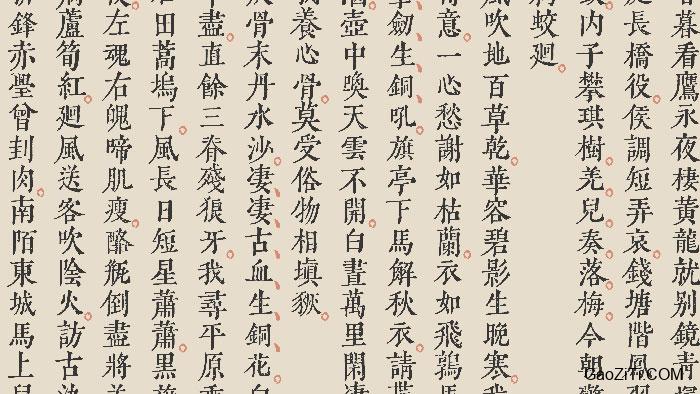 暮看鷹永夜棲黃龍就別鏡青
長橋役。侯調短弄哀。錢塘階鳳
内子攀琪樹。羌兒奏落梅。今朝
蛟廻。
風吹地百草乾。華容碧影生晚寒。我
意。一心愁謝如枯蘭。衣如飛鶉馬
劒生銅吼。旗亭下馬解秋衣。請貰
壺中喚天雲不開。白晝萬里閑凄
養心骨。莫受俗物相塡豥。
骨末丹水沙。凄凄古血生銅花。白
盡。直餘三脊殘狼牙。我尋平原乘
田蒿塢下。風長日短星蕭蕭。黑旗
左魂右魄啼肌瘦。酪瓶倒盡將羊
蘆筍紅。廻風送客吹陰火。訪古
鋒赤璺曾刲肉。南陌東城馬上兒
GaoZiTi.COM